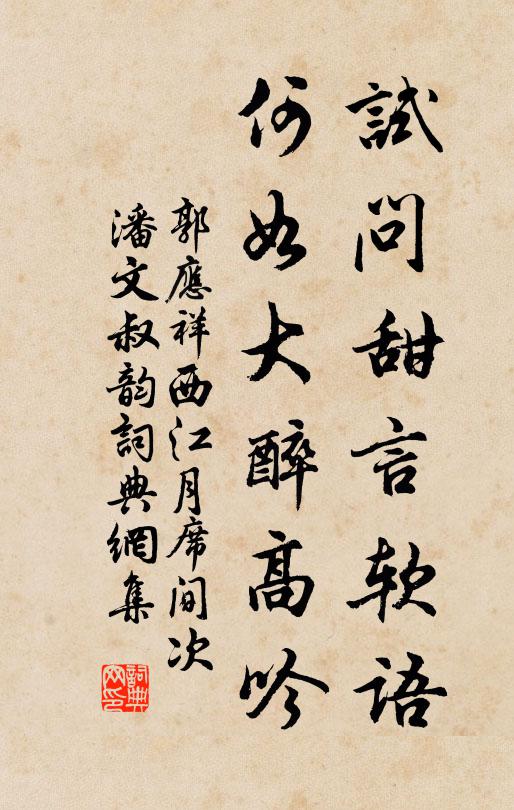 試問甜言軟語
何如大醉高吟
郭應祥西江月席間次
潘文叔韵詞典網集
詞典
网印